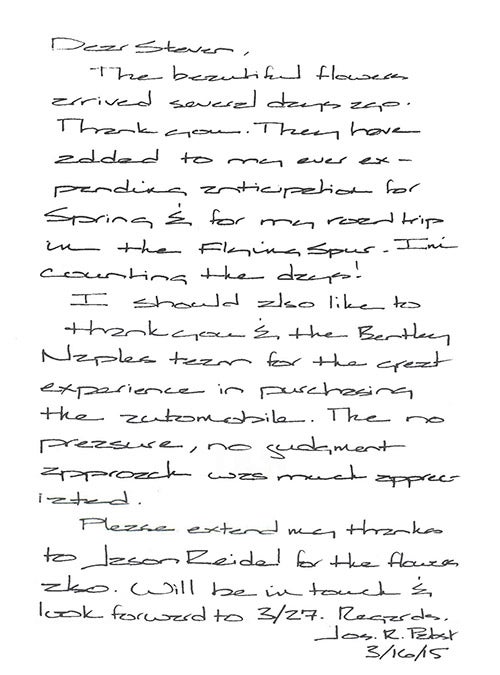 Dear Steven,
The beautiful flowers
arrived several days ago.
Thank you. They have
added to my ever ex-
panding anticipation for
Spring & for my road trip
in the Flying Spur. I'm
counting the days!
I should also like to
thank you & the Bentley
Naples team for the great
experience in purchasing
the automobile. The no
pressure, no judgment
approach was much apprec-
iated.
Please extend my thanks
to Jason Reidel for the flowers
also. Will be in touch &
look forward to 3/27. Regards.
Jos. R. Pabst
3/16/15